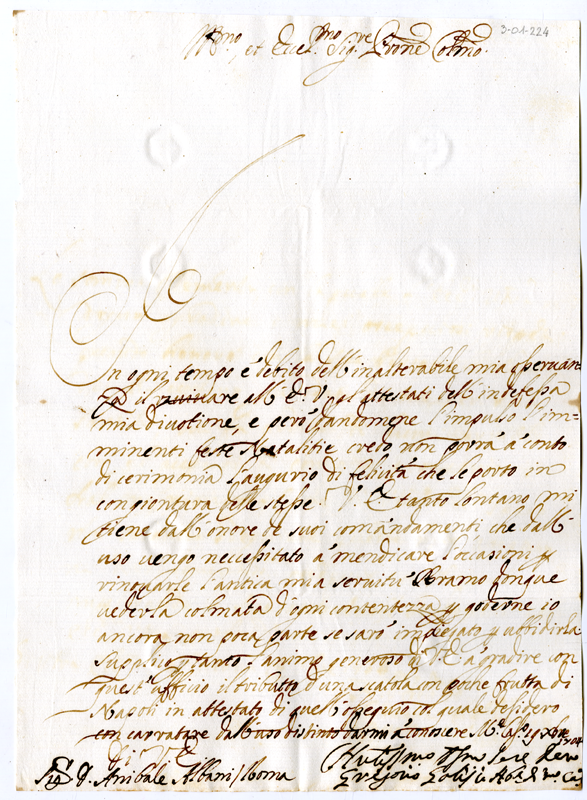 3-01-224
Ill.mo et Ecc.mo Sig.re Prone Colmo
In ogni tempo è debito dell'inalterabile mia osservan
il are all' E. V. gl'attestati dell'indefessa
mia divotione, e però dandomene l'impulso l'im=
minenti feste Natalitie credo non porrà à conto
di cerimonia l'augurio di felicità che le porto in
congiontura delle stesse. V. E. tanto lontano mi
tiene dall'onore de suoi comandamenti che dall'
uso vengo neccessitato à mendicare l'occasioni p
rinovarle l'antica mia servitù Bramo donque
vederla colmata d'ogni contentezza p goderne io
ancora non poca parte se sarò impiegato p ubidirla
Supplico p tanto l'animo generoso di V. E. à gradire con
quest'ufficio il tributo d'una scatola con poche frutta di
Napoli in attestato di quell'ossequio col quale desidero
dall'uso distinto darmi à conoscere
Di V. E.
Sig.r D. Anibale Albani / Roma
Gregorio